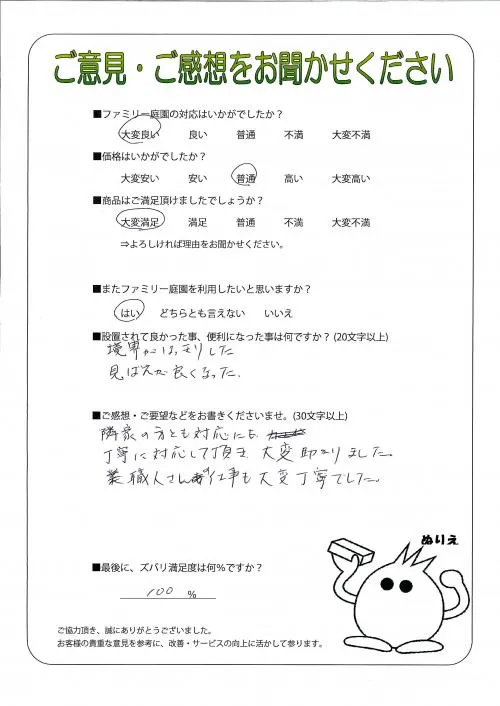 ご意見・ご感想をお聞かせください
■ファミリー庭園の対応はいかがでしたか？
大変良い 良い 普通 不満 大変不満
■価格はいかがでしたか？
大変安い 安い 普通 高い 大変高い
■商品はご満足頂けましたでしょうか？
大変満足 満足 普通 不満 大変不満
⇒よろしければ理由をお聞かせください。
■またファミリー庭園を利用したいと思いますか？
はい どちらとも言えない いいえ
■設置されて良かった事、便利になった事は何ですか？(20文字以上)
境界がはっきりした
見ばえが良くなった。
■ご感想・ご要望などをお書きくださいませ。(30文字以上)
隣家の方とも対応にも
丁寧に対応して頂き、大変助かりました。
職人さんの仕事も大変丁寧でした。
ぬりえ
■最後に、ズバリ満足度は何％ですか？
100 %
ご協力頂き、誠にありがとうございました。
お客様の貴重な意見を参考に、改善・サービスの向上に活かして参ります。